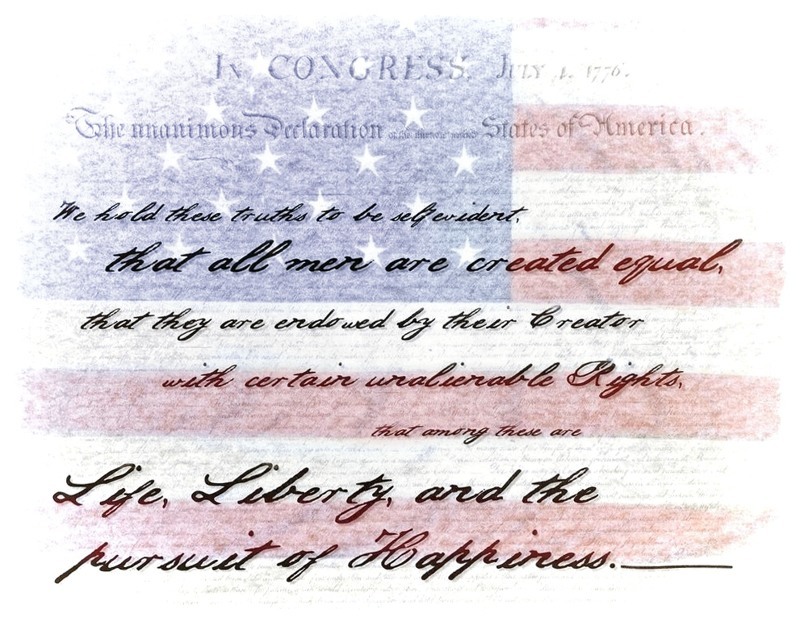 In CONGRESS. July 4, 1776.
The unanimous Declaration of the thirteen united States of America.
We hold these truths to be self evident,
that all men are created equal,
that they are endowed by their Creator
with certain unalienable Rights,
that among these are
Life, Liberty, and the
pursuit of Happiness.